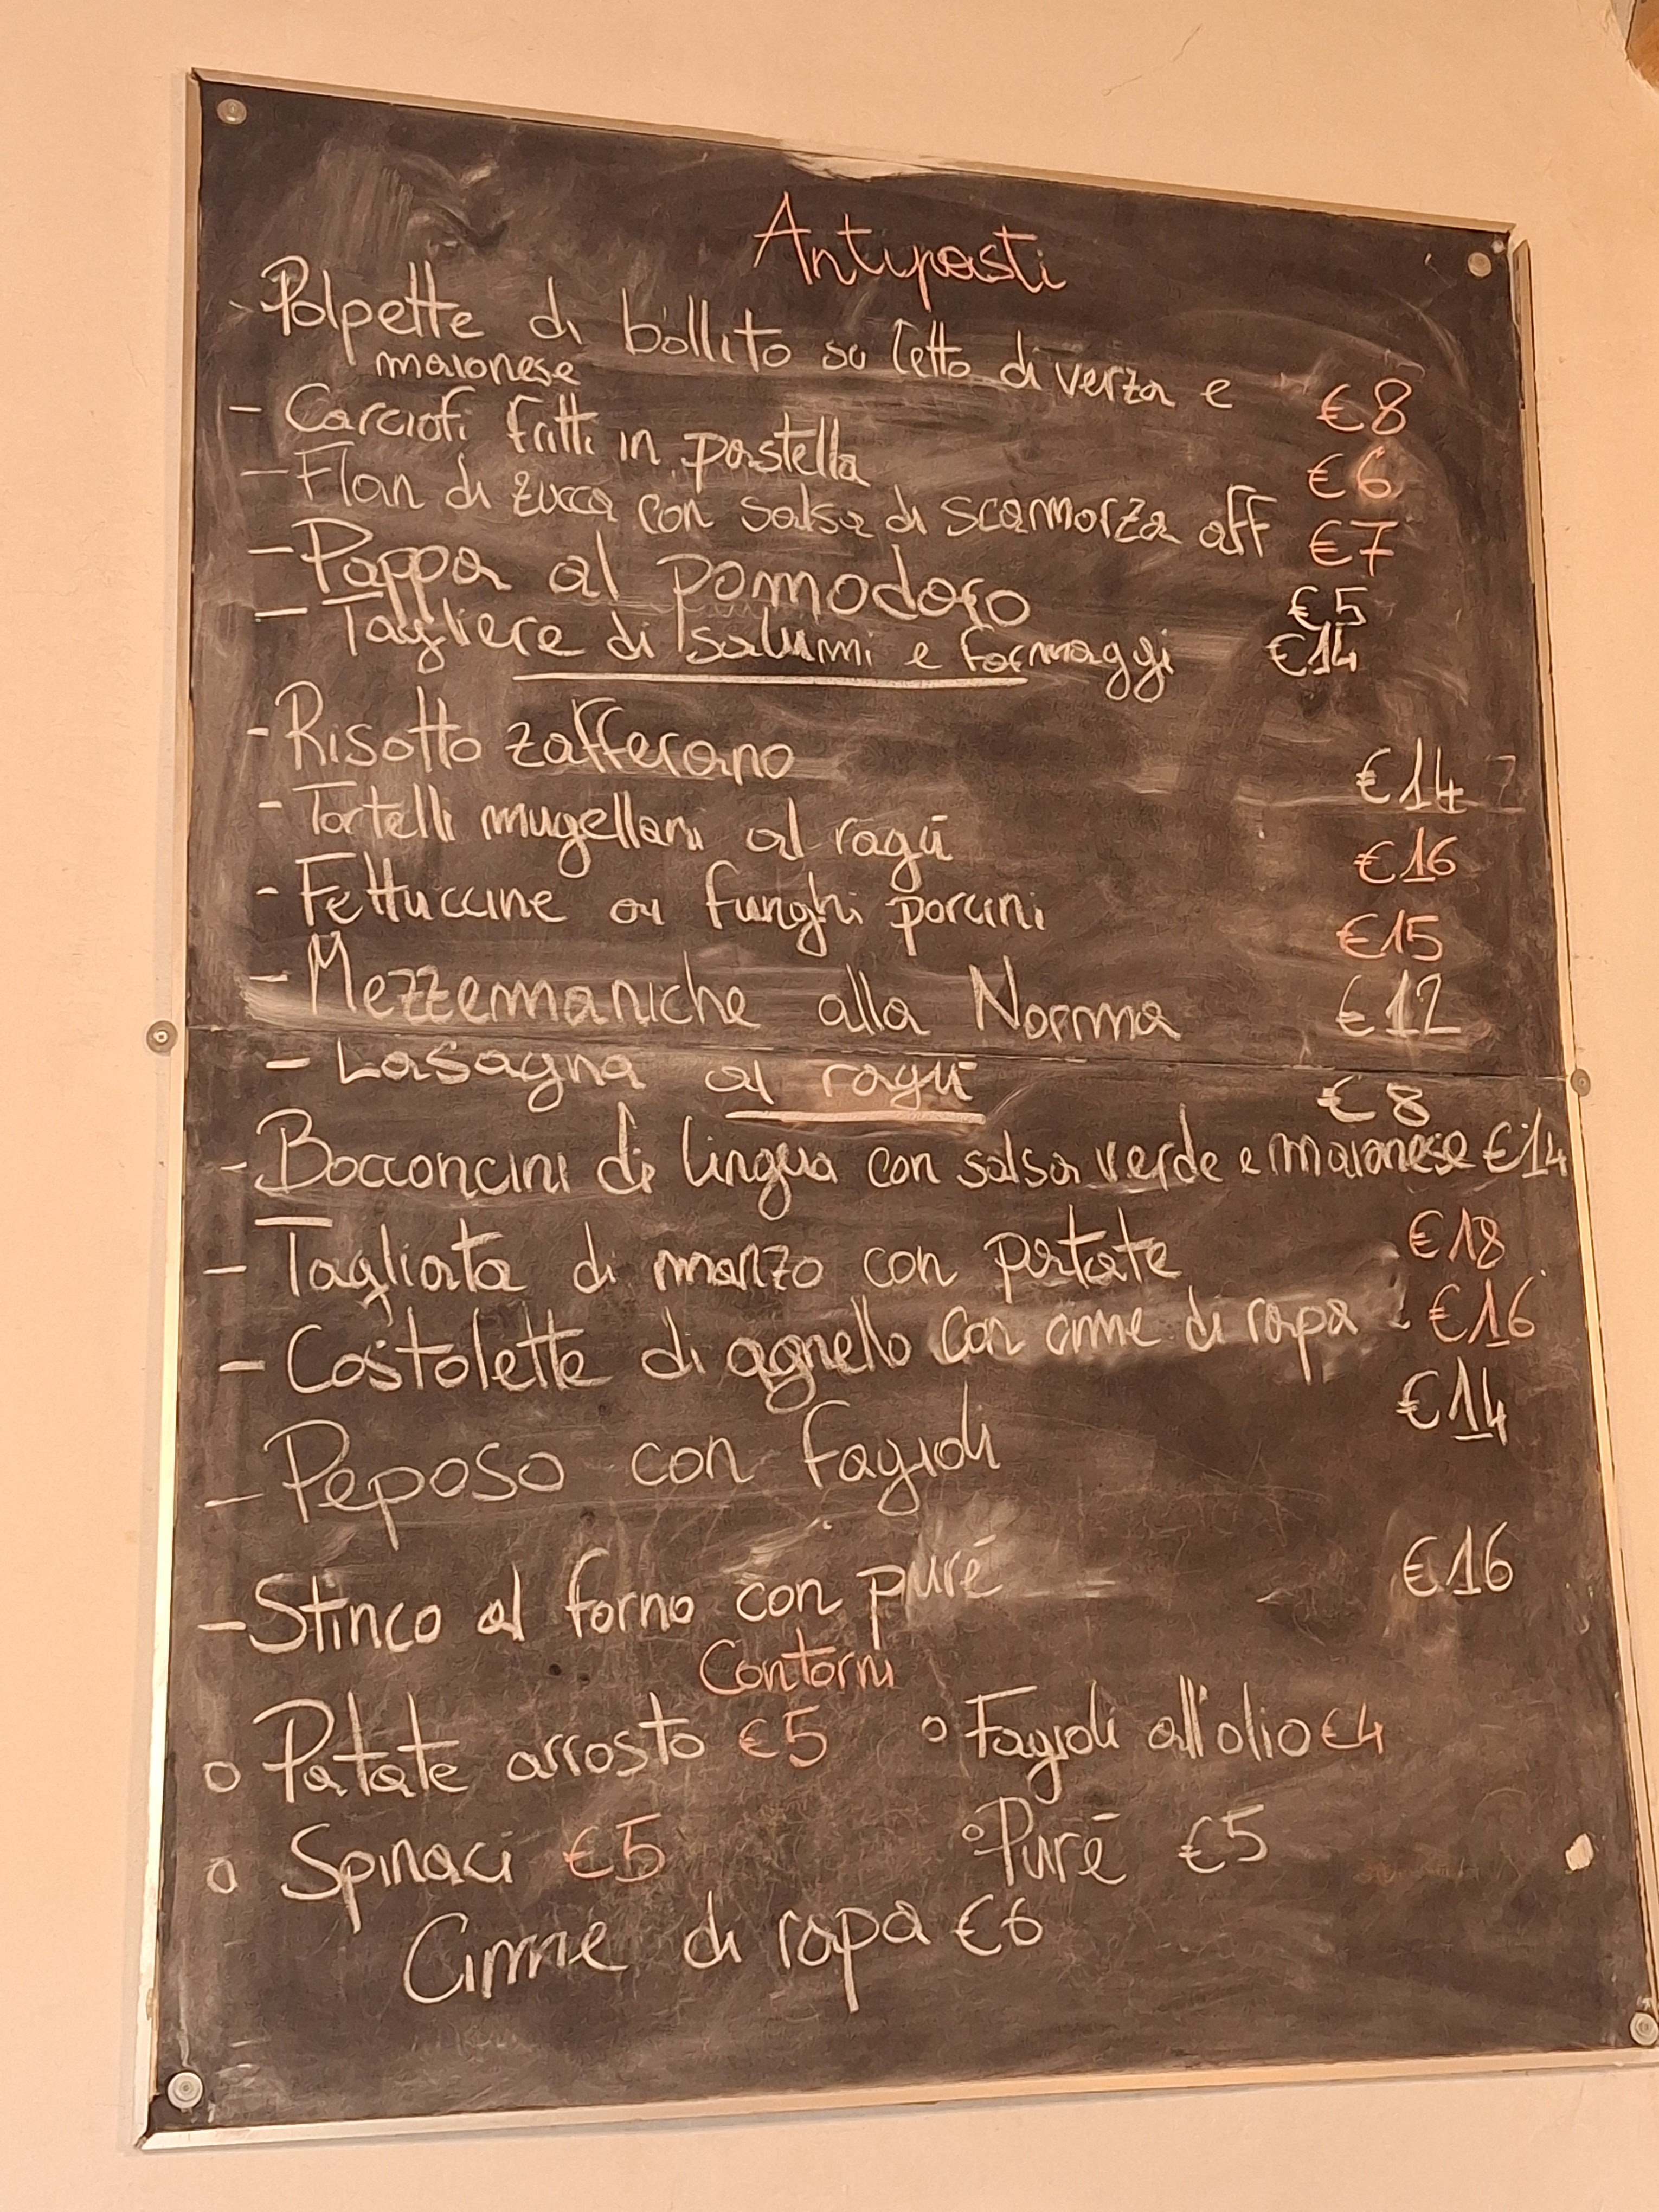 Antipasti
Polpette di bollito su letto di verza e €8
maionese
- Carciofi fritti in pastella €6
- Flan di zucca con salsa di scamorza aff €7
- Pappa al pomodoro €5
- Tagliere di salumi e formaggi €14
- Risotto zafferano €14
- Tortelli mugellani al ragù €16
- Fettuccine ai funghi porcini €15
- Mezzemaniche alla Norma €12
- Lasagna al ragù €8
- Bocconcini di lingua con salsa verde e maionese €14
- Tagliata di manzo con patate €18
- Costolette di agnello con cime di rapa €16
- Peposo con fagioli €14
- Stinco al forno con purè €16
Contorni
o Patate arrosto €5 o Fagioli all'olio €4
o Spinaci €5 o Purè €5
Cime di rapa €6